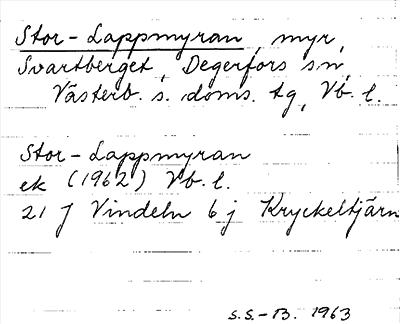 Stor-Lappmyran, myr,
Svartberget, Degerfors sn,
Västerb. s. doms. tg, Vb. l.
Stor-Lappmyran
ek (1962) Vb. l.
21 J Vindeln 6 j Kryckeltjärn
S.S.-B. 1963